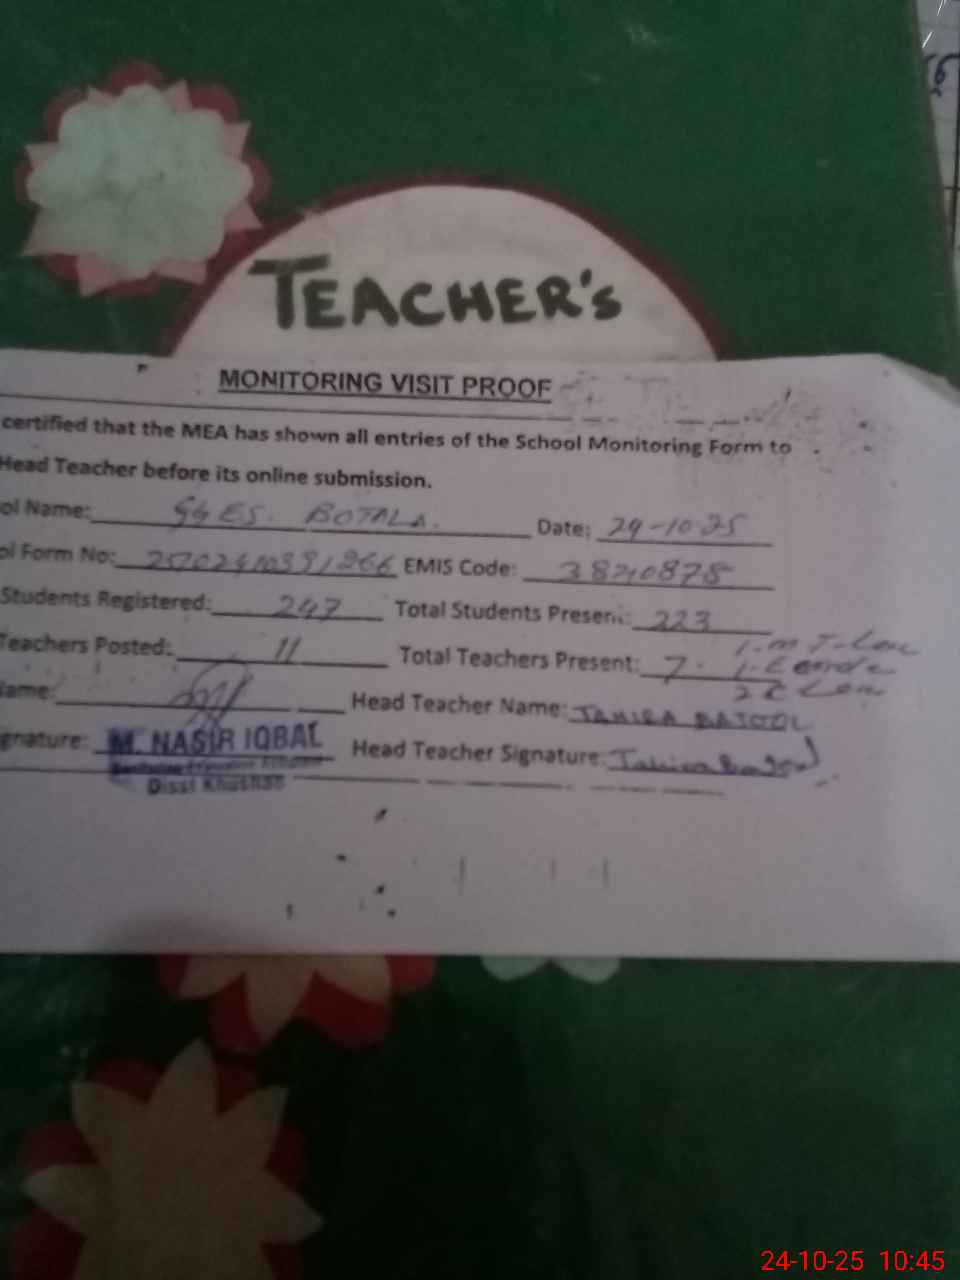 TEACHER's
MONITORING VISIT PROOF
certified that the MEA has shown all entries of the School Monitoring Form to
Head Teacher before its online submission.
ol Name: GGES. BOTALA. Date: 29-10-25
ol Form No: EMIS Code: 3820878
Students Registered: 247 Total Students Present: 223
Teachers Posted: 11 Total Teachers Present: 7
ame: Head Teacher Name: TAHIRA BATOOL
gnature: M. NASIR IQBAL Head Teacher Signature: Tahira Batool
Disst Khushab
24-10-25 10:45